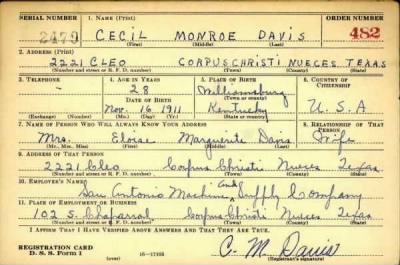 SERIAL NUMBER 1. Name (Print) ORDER NUMBER
2479 CECIL MONROE DAVIS 482
(First) (Middle) (Last)
2. ADDRESS (Print)
2221 CLEO CORPUS CHRISTI NUECES TEXAS
(Number and street or R. F. D. number) (Town) (County) (State)
3. TELEPHONE 4. AGE IN YEARS 5. PLACE OF BIRTH 6. COUNTRY OF CITIZENSHIP
- 28 Williamsburg
DATE OF BIRTH (Town or county)
Nov. 16 1911 Kentucky U. S. A
(Exchange) (Number) (Mo.) (Day) (Yr.) (State or country)
7. NAME OF PERSON WHO WILL ALWAYS KNOW YOUR ADDRESS 8. RELATIONSHIP OF THAT PERSON
Mrs. Eloise Marguerite Davis Wife
(Mr., Mrs., Miss) (First) (Middle) (Last)
9. ADDRESS OF THAT PERSON
2221 Cleo Corpus Christi Nueces Texas
(Number and street or R. F. D. number) (Town) (County) (State)
10. EMPLOYER'S NAME
San Antonio Machine and Supply Company
11. PLACE OF EMPLOYMENT OR BUSINESS
102 S. Chaparral Corpus Christi Nueces Texas
(Number and street or R. F. D. number) (Town) (County) (State)
I AFFIRM THAT I HAVE VERIFIED ABOVE ANSWERS AND THAT THEY ARE TRUE.
REGISTRATION CARD
D. S. S. Form 1 (over) C. M. Davis
(Registrant's signature)